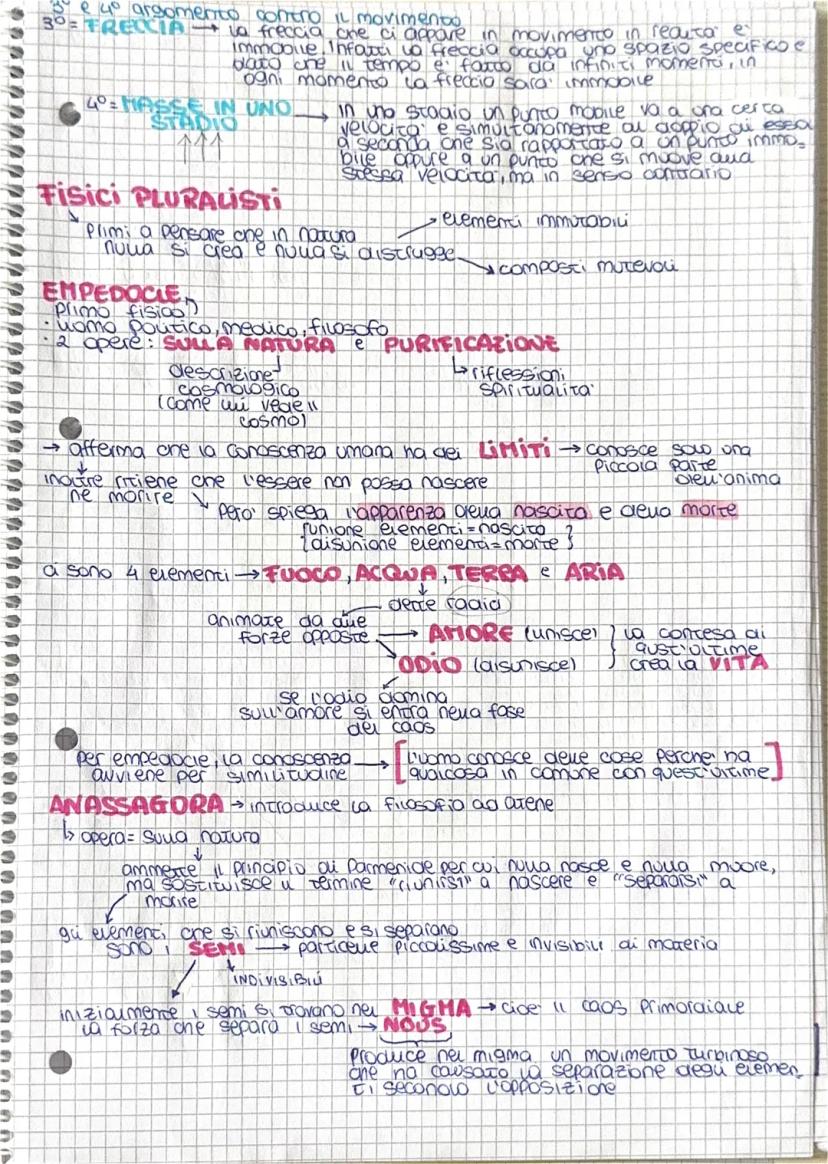 3° e 4° argomento contro il movimento
3° = FRECCIA → la freccia che ci appare in movimento in realtà è
immobile. Infatti la freccia occupa uno spazio specifico e
dato che il tempo è fatto da infiniti momenti, in
ogni momento la freccia sarà immobile
4° = MASSE IN UNO STADIO → In uno stadio un punto mobile va a una certa
velocità e simultaneamente al doppio di essa
a seconda che sia rapportato a un punto immo-
bile oppure a un punto che si muove alla
stessa velocità, ma in senso contrario
FISICI PLURALISTI
Primi a pensare che in natura
nulla si crea e nulla si distrugge
→ elementi immutabili
→ composti mutevoli
EMPEDOCLE
primo fisico
· uomo politico, medico, filosofo
· 2 opere: SULLA NATURA e PURIFICAZIONE
descrizione
cosmologico
(come lui vede il
cosmo)
↳ riflessioni
spiritualità
→ afferma che la conoscenza umana ha dei LIMITI → conosce solo una
piccola parte
dell'anima
inoltre ritiene che l'essere non possa nascere
ne morire
però spiega l'apparenza della nascita e della morte
{unione elementi = nascita
{disunione elementi = morte}
ci sono 4 elementi → FUOCO, ACQUA, TERRA e ARIA
dette radici
animate da due
forze opposte → AMORE (unisce)
ODIO (disunisce)
la contesa di
qust'ultime
crea la VITA
se l'odio domina
sull'amore si entra nella fase
del caos
per empedocle, la conoscenza
avviene per similitudine → [l'uomo conosce delle cose perchè ha
qualcosa in comune con quest'ultime]
ANASSAGORA → introduce la filosofia ad atene
↳ opera = sulla natura
ammette il principio di Parmenide per cui nulla nasce e nulla muore,
ma sostituisce il termine "riunirsi" a nascere e "separarsi" a
morire
gli elementi che si riuniscono e si separano
sono i SEMI → particelle piccolissime e invisibili di materia
INDIVISIBILI
inizialmente i semi si trovano nel MIGMA → cioè il caos primordiale
la forza che separa i semi → NOUS
Produce nel migma un movimento turbinoso
che ha causato la separazione degli elemen-
ti secondo l'opposizione